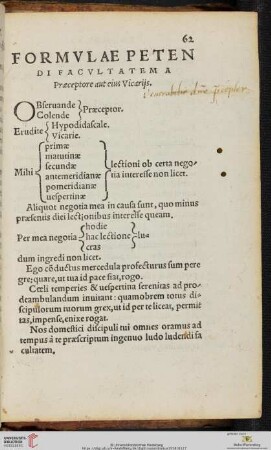 62
FORMVLAE PETEN
DI FACVLTATEM A
Præceptore aut eius Vicarijs.
OBseruande
Colende
Præceptor.
Erudite
Hypodidascale.
Vicarie.
Mihi
primæ
matutinæ
secundæ
antemeridianæ
pomeridianæ
uespertinæ
lectioni ob certa nego-
tia interesse non licet.
Aliquot negotia mea in causa sunt, quo minus
præsentis diei lectionibus interesse queam.
Per mea negotia
hodie
hac lectione
cras
lu-
dum ingredi non licet.
Ego cōductus mercedula profecturus sum pere
gre: quare, ut tua id pace fiat, rogo.
Cœli temperies & uespertina serenitas ad pro-
deambulandum inuitant: quamobrem totus di-
scipulorum morum grex, ut id per te liceat, permit
tas, impense, enixe rogat.
Nos domestici discipuli tui omnes oramus ad
tempus à te præscriptum ingenuo ludo ludendi fa
cultatem.